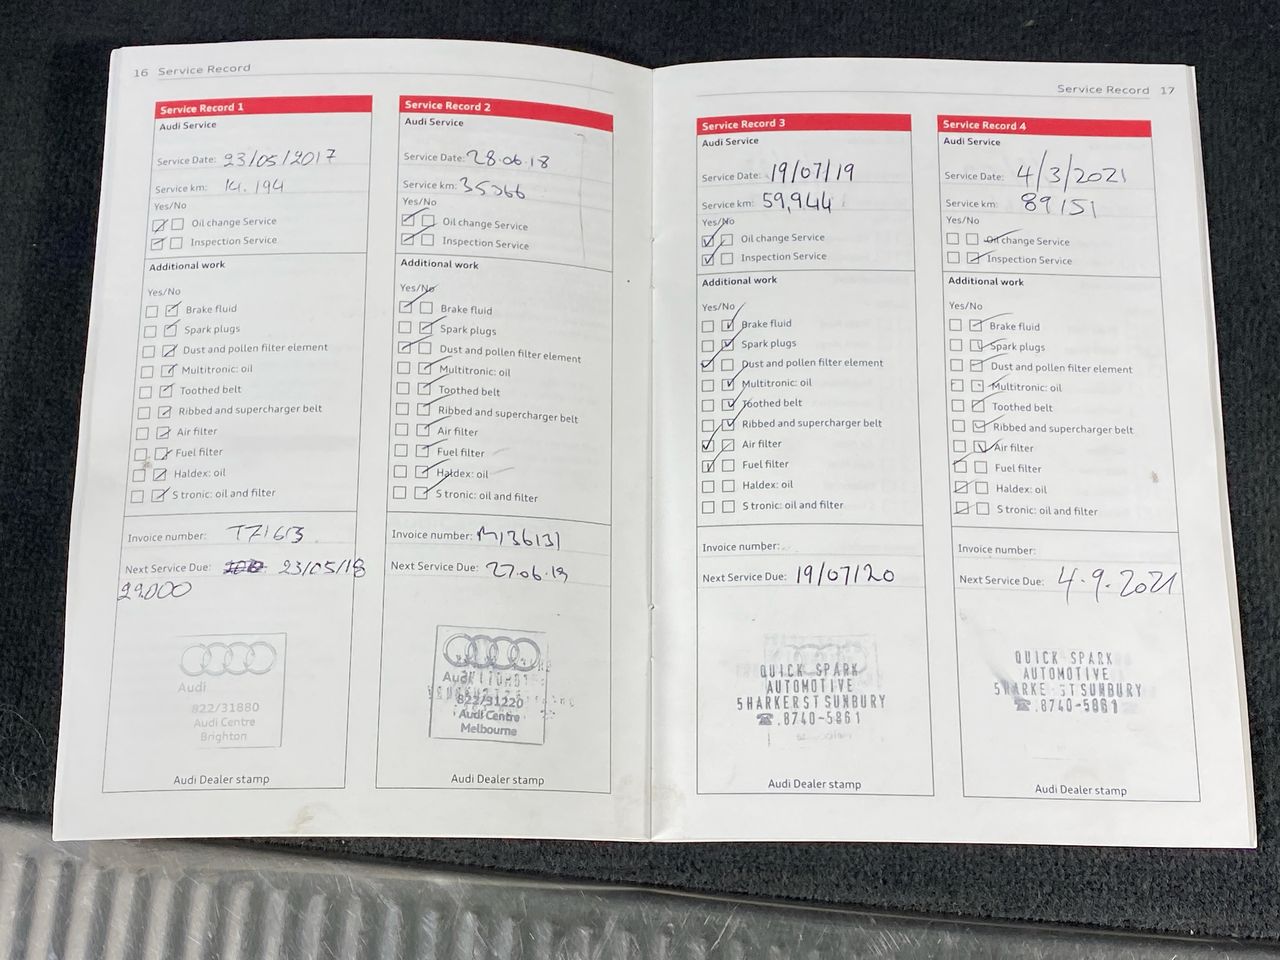 16 Service Record
Service Record 1
Audi Service
Service Date: 23/05/2017
Service km: 14.194
Yes/No
Oil change Service
Inspection Service
Additional work
Yes/No
Brake fluid
Spark plugs
Dust and pollen filter element
Multitronic: oil
Toothed belt
Ribbed and supercharger belt
Air filter
Fuel filter
Haldex: oil
S tronic: oil and filter
Invoice number:
Next Service Due: 23/05/18
29.000
Audi
822/31880
Audi Centre
Brighton
Audi Dealer stamp
Service Record 2
Audi Service
Service Date: 28.06.18
Service km:
Yes/No
Oil change Service
Inspection Service
Additional work
Yes/No
Brake fluid
Spark plugs
Dust and pollen filter element
Multitronic: oil
Toothed belt
Ribbed and supercharger belt
Air filter
Fuel filter
Haldex: oil
S tronic: oil and filter
Invoice number: M136131
Next Service Due: 27.06.19
Audi
822/31220
Audi Centre
Melbourne
Audi Dealer stamp
Service Record 17
Service Record 3
Audi Service
Service Date: 19/07/19
Service km: 59,944
Yes/No
Oil change Service
Inspection Service
Additional work
Yes/No
Brake fluid
Spark plugs
Dust and pollen filter element
Multitronic: oil
Toothed belt
Ribbed and supercharger belt
Air filter
Fuel filter
Haldex: oil
S tronic: oil and filter
Invoice number:
Next Service Due: 19/07/20
QUICK SPARK
AUTOMOTIVE
5 HARKER ST SUNBURY
☎.8740-5861
Audi Dealer stamp
Service Record 4
Audi Service
Service Date: 4/3/2021
Service km: 89151
Yes/No
Oil change Service
Inspection Service
Additional work
Yes/No
Brake fluid
Spark plugs
Dust and pollen filter element
Multitronic: oil
Toothed belt
Ribbed and supercharger belt
Air filter
Fuel filter
Haldex: oil
S tronic: oil and filter
Invoice number:
Next Service Due: 4.9.2021
QUICK SPARK
AUTOMOTIVE
5 HARKE ST SUNBURY
☎.8740-5861
Audi Dealer stamp